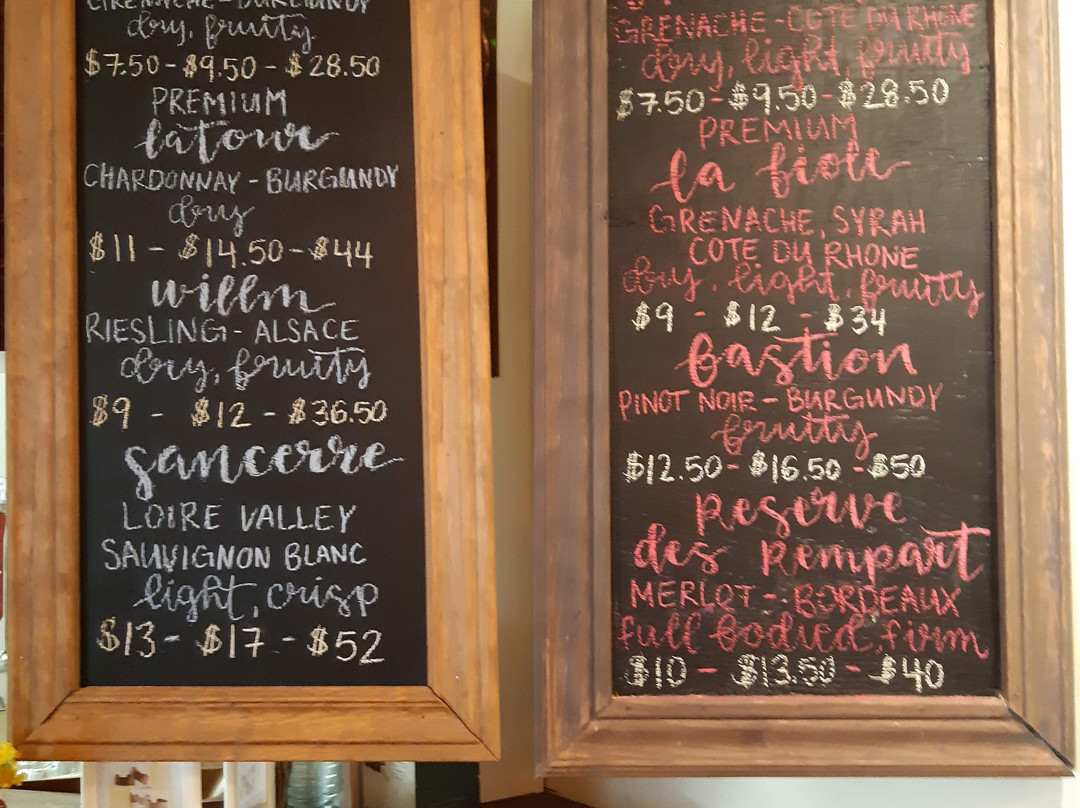 GRENACHE - BURGUNDY
dry, fruity
$7.50 - $9.50 - $28.50
PREMIUM
latour
CHARDONNAY - BURGUNDY
dry
$11 - $14.50 - $44
willm
RIESLING - ALSACE
dry, fruity
$9 - $12 - $36.50
sancerre
LOIRE VALLEY
SAUVIGNON BLANC
light, crisp
$13 - $17 - $52
GRENACHE - COTE DU RHONE
dry, light, fruity
$7.50 - $9.50 - $28.50
PREMIUM
la fiole
GRENACHE, SYRAH
COTE DU RHONE
dry, light, fruity
$9 - $12 - $34
bastion
PINOT NOIR - BURGUNDY
fruity
$12.50 - $16.50 - $50
Reserve
des Rempart
MERLOT - BORDEAUX
full bodied, firm
$10 - $13.50 - $40